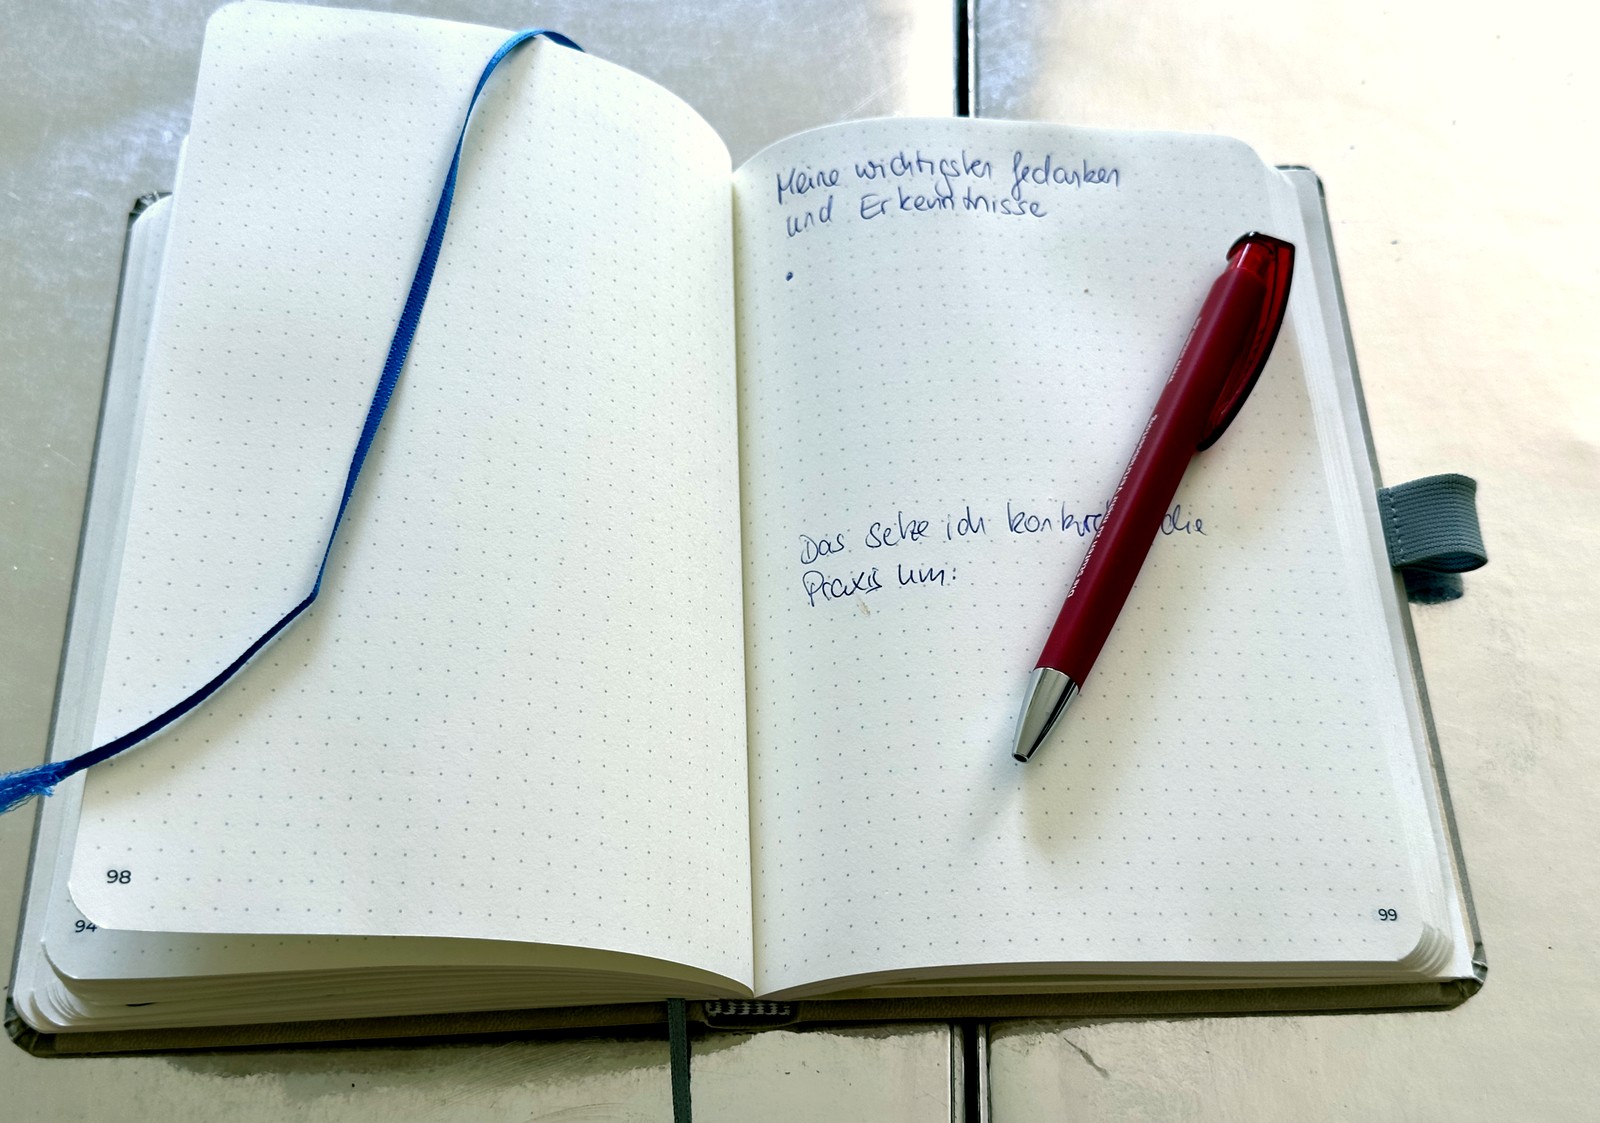 Meine wichtigsten Gedanken
und Erkenntnisse
•
Das setze ich die
Praxis um:
98
94
99